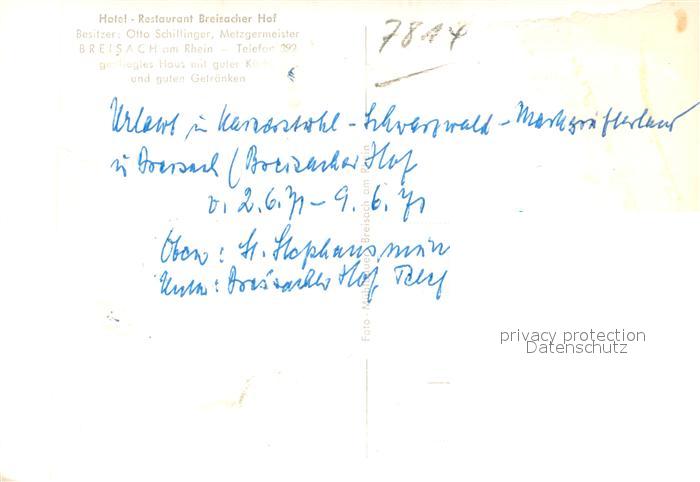 Hotel - Restaurant Breisacher Hof
Besitzer: Otto Schillinger, Metzgermeister
BREISACH am Rhein - Telefon 392
gepflegtes Haus mit guter Küche
und guten Getränken
7814
Urlaub in Kaiserstuhl - Schwarzwald - Markgräflerland
in Breisach (Breisacher Hof
v. 2.6.71 - 9.6.71
Oben: St. Stephansmün
Unten: Breisacher Hof
Breisach am Rhein
privacy protection
Datenschutz